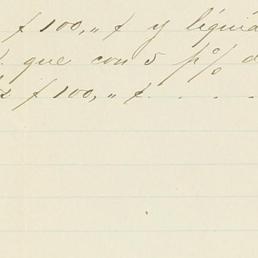 f 100,,, f y líquid
que con 5 p%
f 100,,, f. . . . .